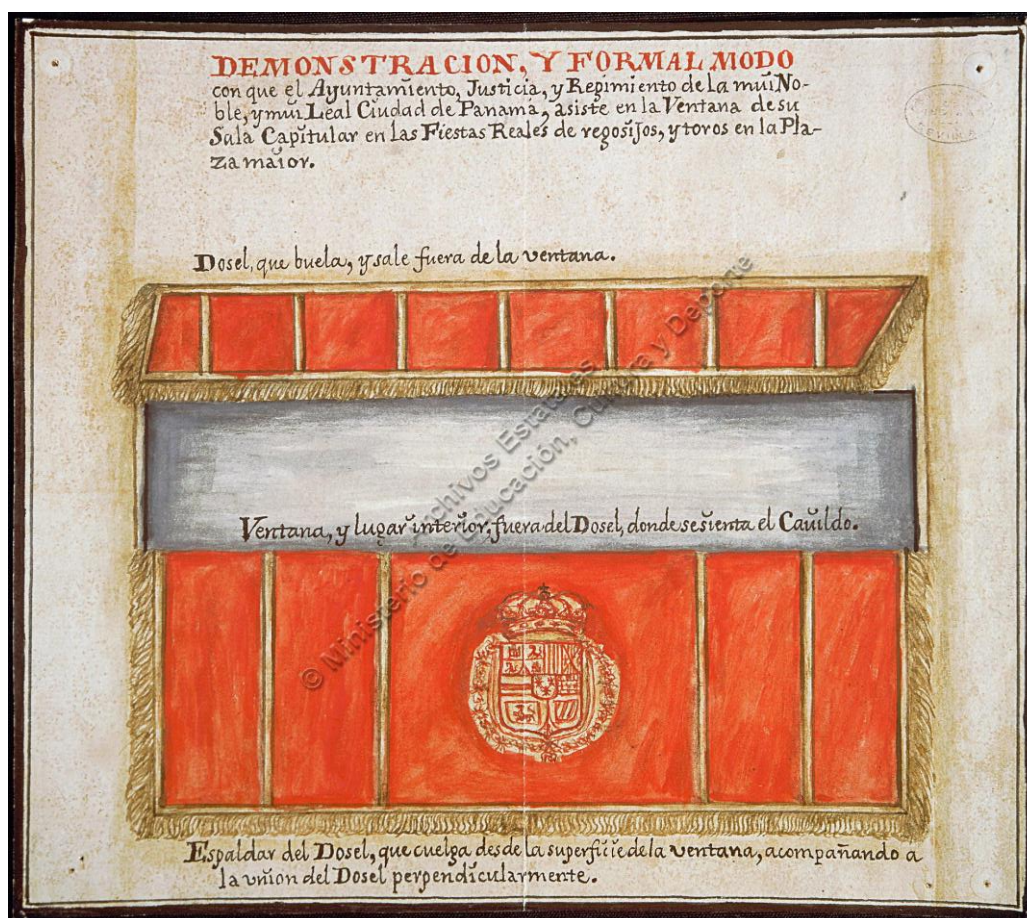 DEMONSTRACION, Y FORMAL MODO
con que el Ayuntamiento, Justicia, y Regimiento de la mui No-
ble, y mui Leal Ciudad de Panamá, asiste en la Ventana de su
Sala Capitular en las Fiestas Reales de regosijos, y toros en la Pla-
za maior.
Dosel, que buela, y sale fuera de la ventana.
Ventana, y lugar interior, fuera del Dosel, donde se sienta el Cavildo.
© Ministerio de Educación, Cultura y Deporte
Archivos Estatales,
Espaldar del Dosel, que cuelga desde la superficie de la ventana, acompañando a
la union del Dosel perpendicularmente.